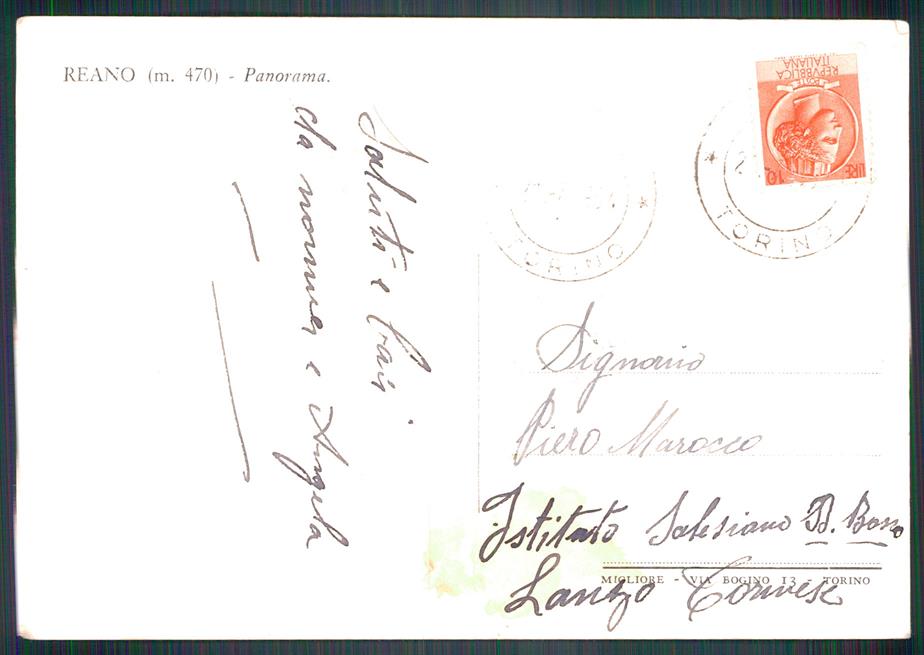 REANO (m. 470) - Panorama.
REPVBBLICA
ITALIANA
POSTE
LIRE 10
TORINO
TORINO
Saluti e baci
da nonna e Angela
Signorino
Piero Marocco
Istituto Salesiano B. Bosco
Lanzo Torinese
MIGLIORE - VIA BOGINO 13 - TORINO